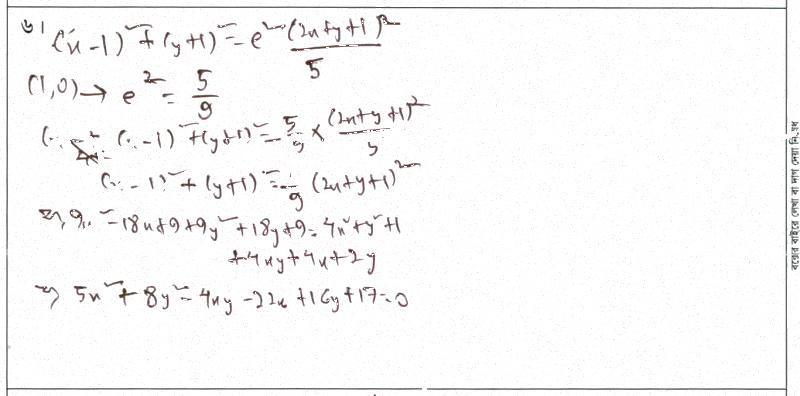 ৬।
(x-1)² + (y+1)² = e² (2x+y+1)²/5
(1,0) → e² = 5/9
(x-1)² + (y+1)² = 5/9 × (2x+y+1)²/5
(x-1)² + (y+1)² = 1/9 (2x+y+1)²
⇒ 9x² - 18x + 9 + 9y² + 18y + 9 = 4x² + y² + 1
+ 4xy + 4x + 2y
⇒ 5x² + 8y² - 4xy - 22x + 16y + 17 = 0
বক্সের বাইরে লেখা বা দাগ দেয়া